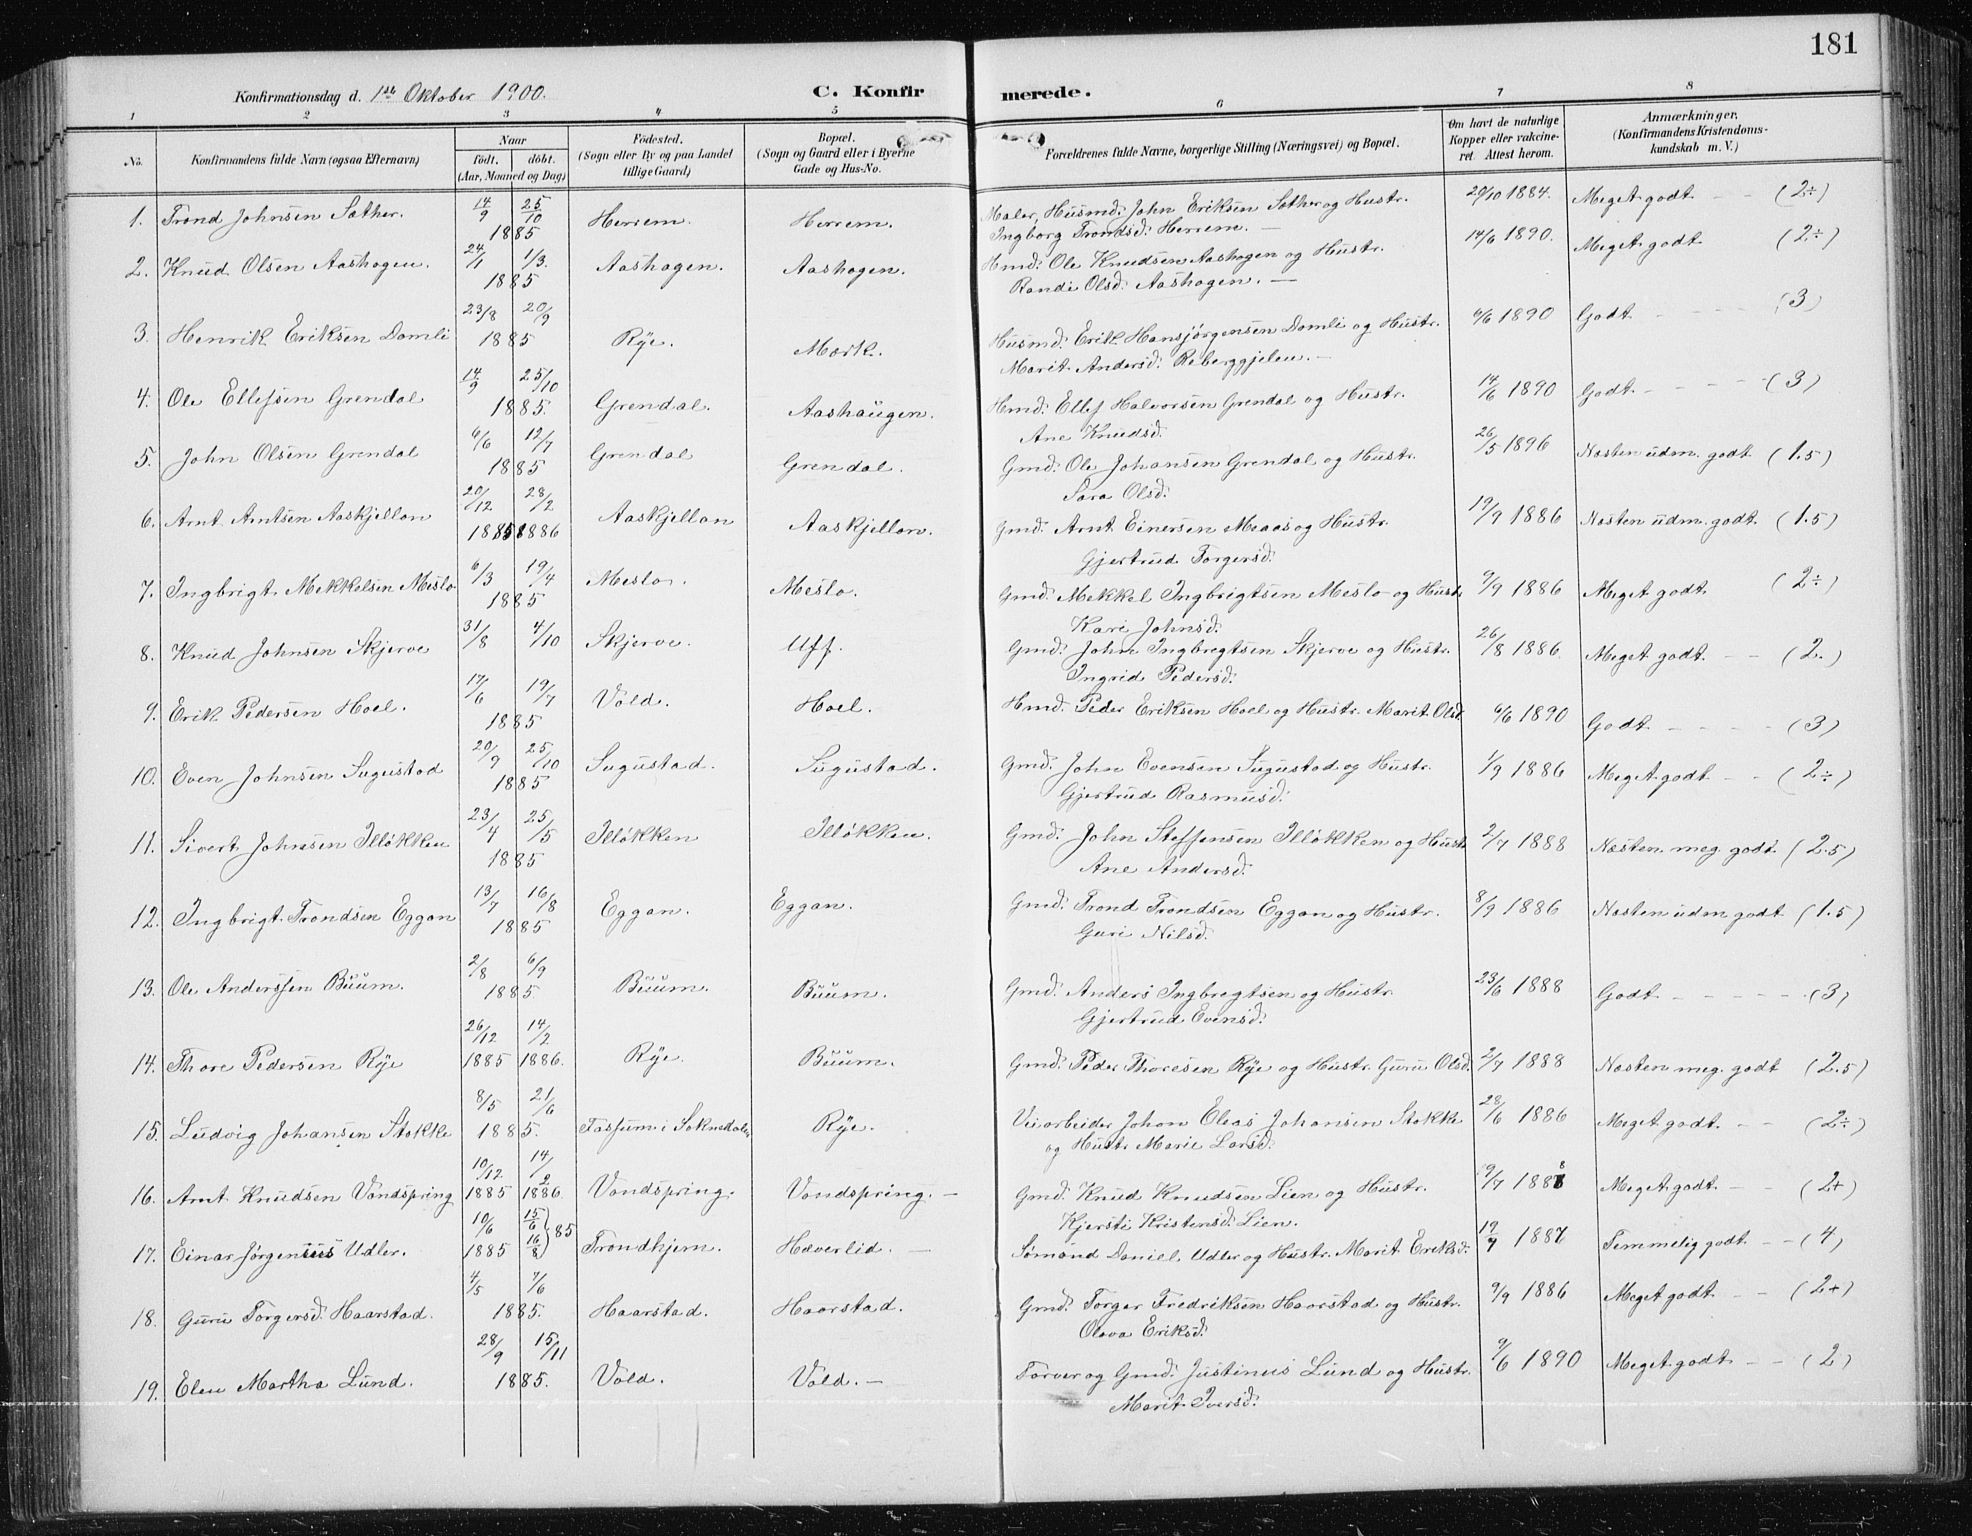 181
Konfirmationsdag d. 1ste Oktober 1900. C. Konfirmerede.
1 2 3 4 5 6 7 8
No. Konfirmandens fulde Navn (ogsaa Efternavn) Naar født. døbt. (Aar, Maaned og Dag) Födested. (Sogn eller By og paa Landet tillige Gaard) Bopæl. (Sogn og Gaard eller i Byerne Gade og Hus-No. Forældrenes fulde Navne, borgerlige Stilling (Næringsvei) og Bopæl. Om havt de naturlige Kopper eller vakcineret. Attest herom. Anmærkninger. (Konfirmandens Kristendomskundskab m. V.)
1. Trond Johnsen Sæther. 14/9 25/10 1885 Herrem. Herrem. Maler, Husmd: John Eriksen Sæther og Hustr. 29/10 1884. Meget godt - - (2÷)
Ingborg Trondsd: Herrem. -
2. Knud Olsen Aashagen. 24/1 1/3. 1885 Aashagen. Aashagen. Hmd: Ole Knudsen Aashagen og Hustr. 14/6 1890. Meget godt (2÷)
Randi Olsd: Aashagen. -
3. Henrik Eriksen Domli 23/8 20/9 1885 Rÿe. Mærk. Husmd: Erik Hansjørgensen Domli og Hustr. 6/6 1890 Godt - - - - (3)
Marit Andersd: Reberggjelen. -
4. Ole Ellefsen Grendal 14/9 25/10 1885. Grendal. Aashaugen. Hmd: Ellef Halvorsen Grendal og Hustr. 14/6 1890 Godt - - - - (3)
Ane Knudsd:
5. John Olsen Grendal 6/6 12/7 1885 Grendal Grendal. Gmd: Ole Johansen Grendal og Hustr. 26/5 1896 Næsten udm. godt (1.5)
Sara Olsd:
6. Arnt Arntsen Aaskjellan 20/12 28/2 1885 1886 Aaskjellan Aaskjellan. Gmd: Arnt Einersen Meaas og Hustr. 19/9 1886 Næsten udm. godt. (1.5)
Gjertrud Torgersd:
7. Ingbrigt Mekkelsen Meslo 6/3 19/4 1885 Meslo. Meslo. Gmd: Mekkel Ingbrigtsen Meslo og Hustr. 9/9 1886 Meget godt (2÷)
Kari Johnsd:
8. Knud Johnsen Skjerve 31/8 4/10 Skjerve. Uff. Gmd: John Ingbregtsen Skjerve og Hustr. 26/8 1886. Meget godt - - (2.)
Ingrid Pedersd:
9. Erik Pedersen Hoel. 17/6 19/7 1885 Vold. Hoel. Hmd: Peder Eriksen Hoel og Hustr. Marit Olsd 6/6 1890 Godt - - - - (3)
10. Even Johnsen Sugustad 20/9 25/10 1885 Sugustad. Sugustad. Gmd: John Evensen Sugustad og Hustr. 1/9 1886 Meget godt - - (2÷)
Gjertrud Rasmusd:
11. Sivert Johnsen Illøkken 23/4 25/5 1885 Illøkken Illøkken. Gmd: John Steffensen Illøkken og Hustr 2/7 1888 Næsten meg. godt. (2.5)
Ane Andersd:
12. Ingbrigt Trondsen Eggan 13/7 16/8 1885 Eggan. Eggan. Gmd: Trond Trondsen Eggan og Hustr. 8/9 1886 Næsten udm godt (1.5)
Guri Nilsd:
13. Ole Anderssen Buum. 2/8 6/9 1885. Buum. Buum. Gmd: Anders Ingbregtsen og Hustr. 23/6 1888 Godt - - - - - (3)
Gjertrud Evensd:
14. Thore Pedersen Rÿe 26/12 14/2 1885 1886. Rÿe. Buum. Gmd: Peder Thoresen Rÿe og Hustr. Guru Olsd. 2/7 1888 Næsten meg. godt (2.5)
15. Ludvig Johansen Stokke 8/5 21/6 1885. Fossum i Soknedalen Rÿe. Veiarbeider Johan Eleas Johansen Stokke 28/6 1886 Meget godt. - - (2÷)
og Hustr Marie Larsd:
16. Arnt Knudsen Vondspring 10/12 14/2 1885 1886. Vondspring. Vondspring. - Gmd: Knud Knudsen Lien og Hustr. 9/7 1888 Meget godt - - (2+)
Kjersti Kristensd: Lien.
17. Einar Jørgenius Udler. 10/6 15/6 16/8 }85 1885 Trondhjem. Hæverlid. - Sømand Daniel Udler og Hustr. Marit Eriksd: 19/7 1887 Temmelig godt - - (4)
18. Guru Torgersd. Haarstad. 4/5 7/6 1885. Haarstad. Haarstad. Gmd: Torger Fredriksen Haarstad og Hustr. 9/9 1886 Meget godt - - (2+)
Olava Eriksd:
19. Elen Martha Lund. 28/9 15/11 1885. Vold. Vold. - Farver og Gmd: Justinus Lund og Hustr. 9/6 1890 Meget godt - - (2)
Marit Iversd: